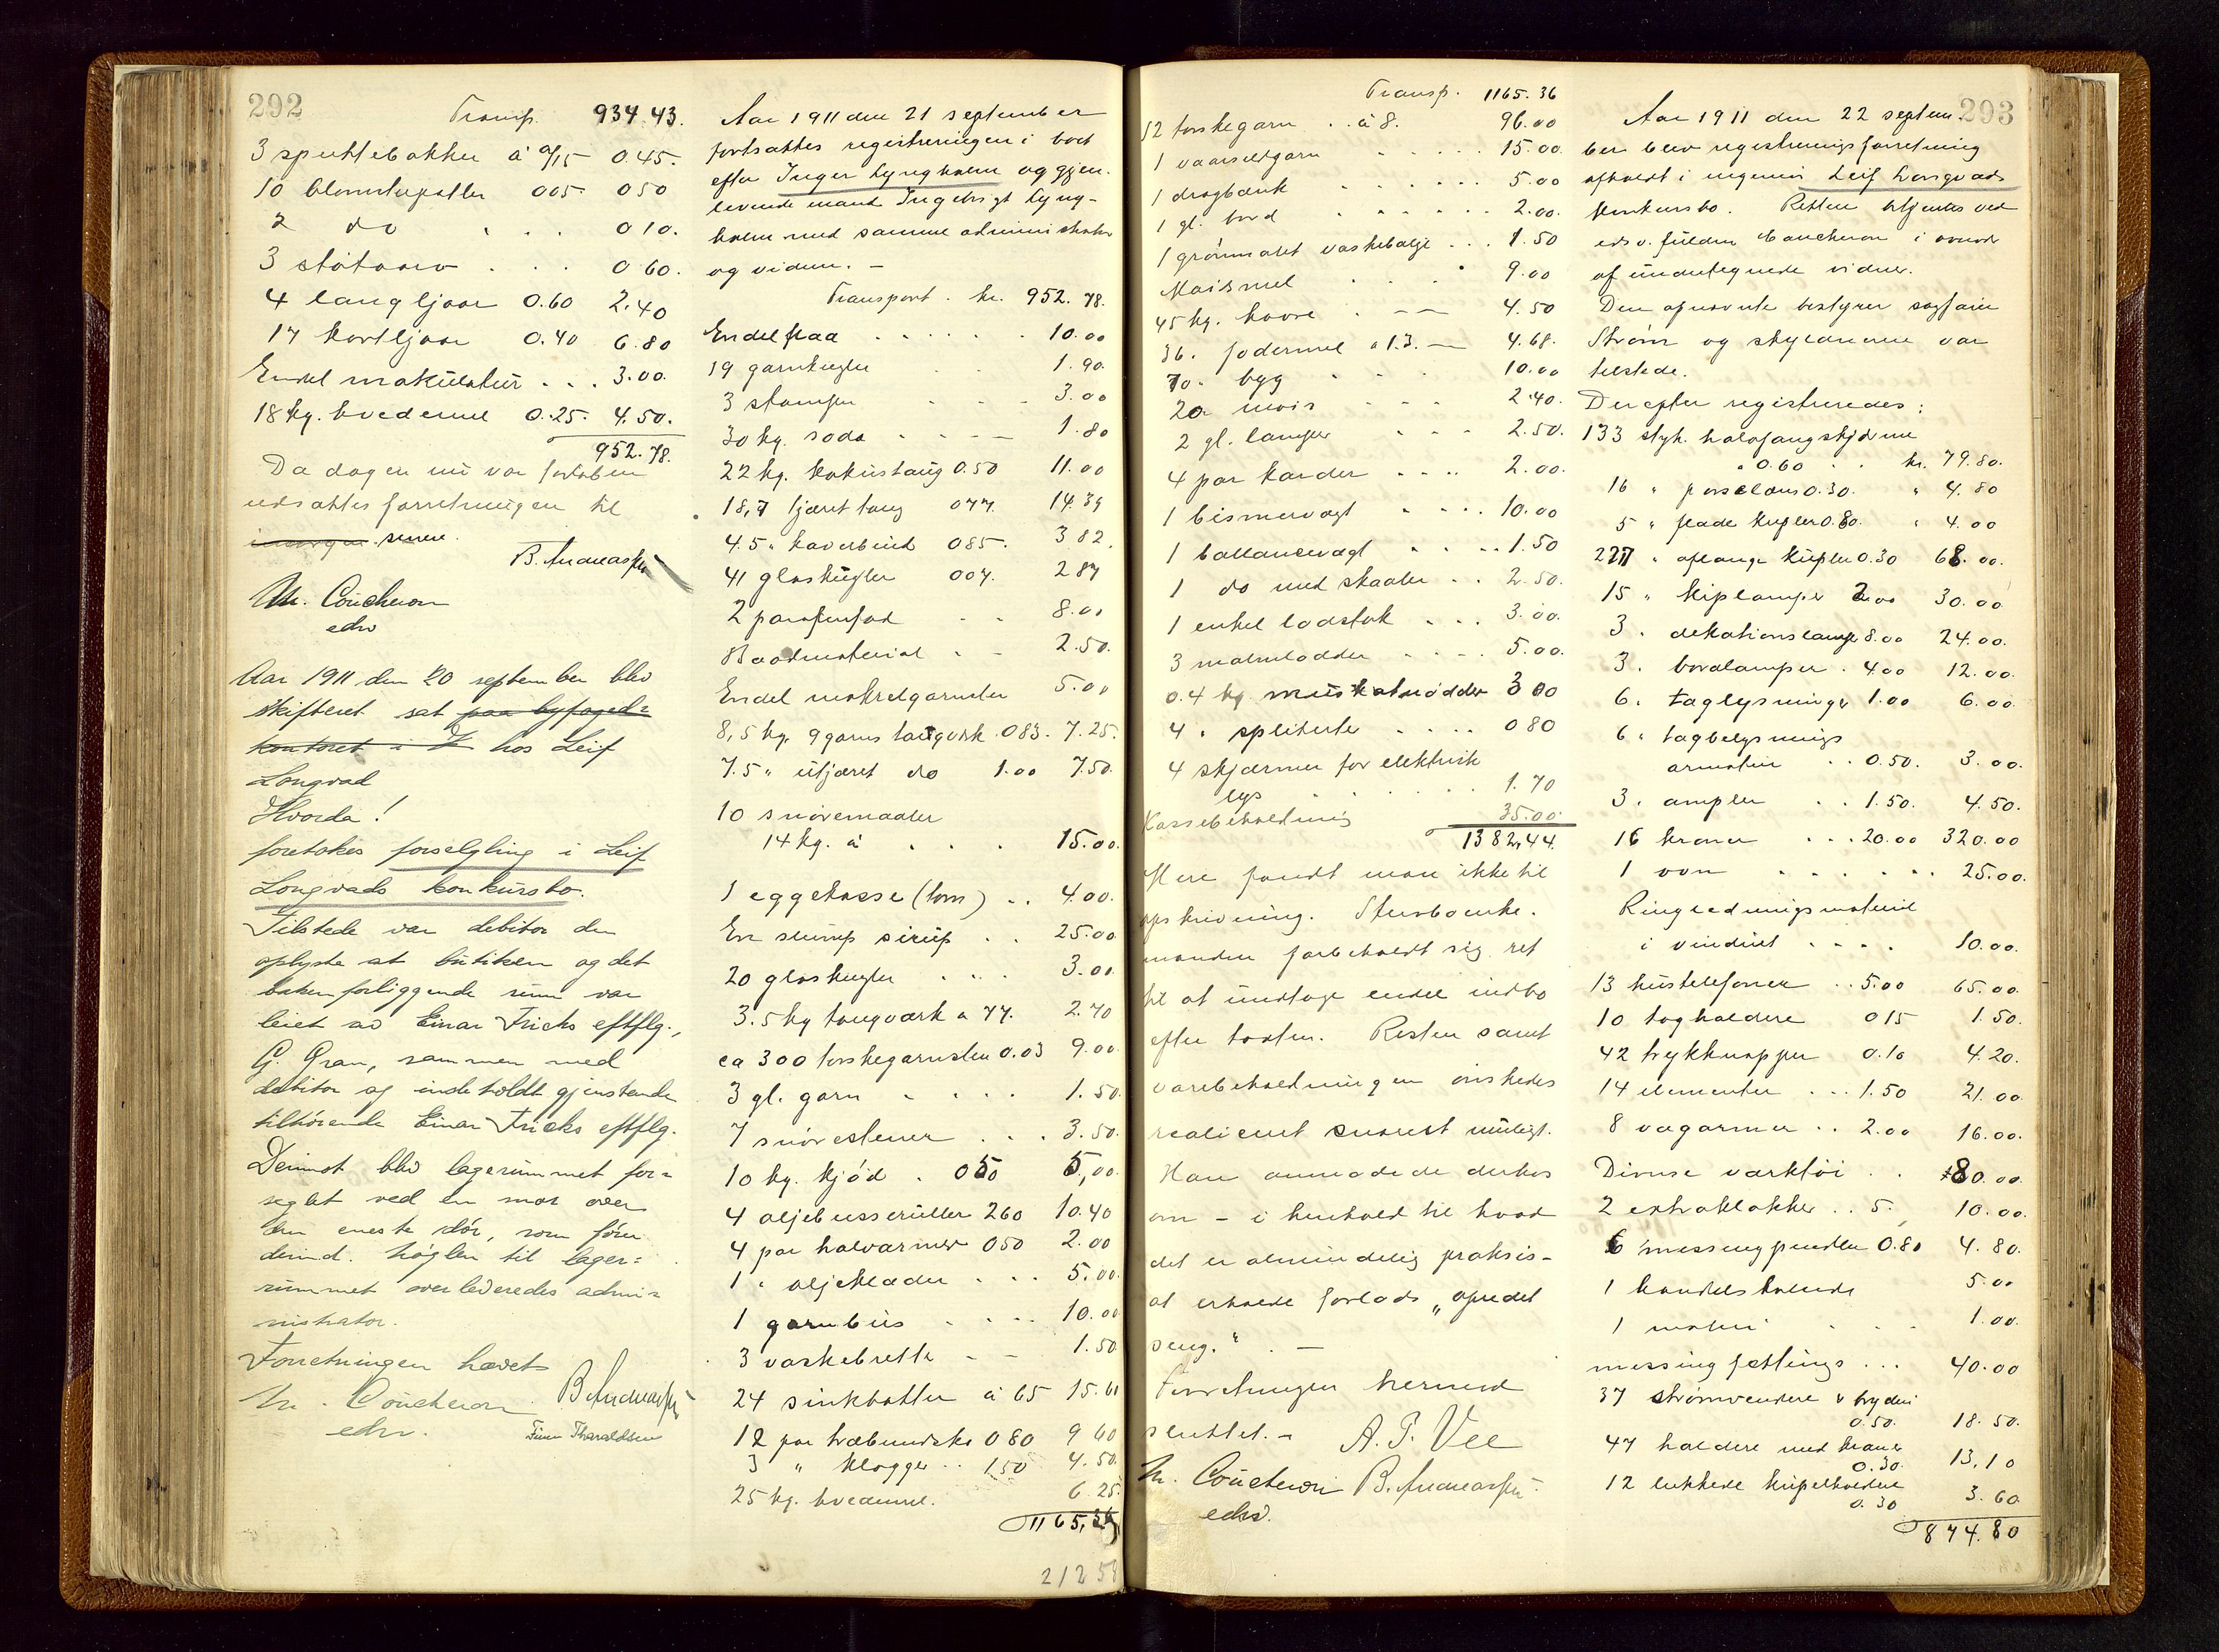 292
Transp. 934.43.
3 spyttebakker á 0/15 0.45.
10 blomsterpotter 005 050
2 do . . . 010.
3 støtaarv . . . 060.
4 langljaar 0.60 2.40
17 kortljaar 0.40 6.80
Endel makulatur . . . 3.00.
18 kg. hvedemel 0.25. 4.50.
952.78.
Da dagen nu var forløben
udsattes forretningen til
imorgen senere.
B. Andreassen
M. Coucheron
edsv
Aar 1911 den 20 september blev
skifteret sat paa byfoged=
kontoret i hos Leif
Longvad
Hvorda!
foretokes forseigling i Leif
Longvads konkursbo.
Tilstede var debitor der
oplyste at butiken og det
bakenforliggende rum var
leiet av Einar Fricks eftflg.,
G. Gran, sammen med
debitor og indeholdt gjenstande
tilhørende Einar Fricks eftflg.
Derimot blev lagerummet for=
seglet ved en snor over
den eneste dør, som fører
derind. Nøglen til lager=
rummet overleveredes admi=
nistrator.
Forretningen hævet
M. Coucheron B. Andreassen
edsv. Finn Tharaldsen
Aar 1911 den 21 september
fortsattes registreringen i boet
efter Inger Lyngholm og gjen-
levende mand Ingebrigt Lyng-
holm med samme administrator
og vidner. -
Transport . kr. 952.78.
Endel flaa . . . . . 10.00
19 garnkugler . . 1.90.
3 stamper - - - 3.00
30 kg. soda . . . - 1.80
22 kg. kokustaug 0.50 11.00
18,7 tjæret taug 077. 14.39
4.5 " haverbind 085. 382.
41 glaskugler 007. 287
2 parafinfad - - 8.00
Baadmaterial . - 2.50.
Endel makrelgarnsten 5.00
8,5 kg. 9 garns taugverk 083. 7.25.
7.5 " utjæret do 1.00 7.50.
10 snøremaaler
14 kg. á . . . 15.00.
1 eggekasse (tom) . . 4.00.
En slump sirup . . 25.00
20 glaskugler . . . 3.00
3.5 kg taugværk a 77. 2.70
ca 300 torskegarnsten 0.03 9.00.
3 gl. garn . . . . 1.50.
7 snørestener . . . 3.50.
10 kg. kjød . 050 5,00.
4 oljebusseruller 260 10.40
4 par halvarmer 050 2.00
1 " oljeklæder . . . 5.00.
1 garnbus . . . . 10.00
3 vaskebrett - - 1.50
24 sinkbøtter á 65 15.60
12 par træbundsko 080 9 60
3 " klogger . . 150 4.50.
25 kg. hvedemel. 6.25.
1165,36
21258
Transp. 1165.36
12 torskegarn . . á 8. 96.00
1 vaarsildgarn . . . . 15.00.
1 dragbænk . . . . . . 5.00
1 gl. bord . . . . . 2.00.
1 grønmalet vaskebalje . . . 1.50
Maismel . . . 9.00
45 kg. havre . - - 4.50
36 . fodermel a 13. - 4.68.
70 . byg . . . 10.00
20 mais - - - 2.40.
2 gl. lamper . . . 2.50.
4 par karder . . . . 2.00.
1 bismervegt . . . . 10.00
1 ballancevægt . . . . 1.50
1 do med skaaler . . 2.50.
1 enkel lodstok . . . 3.00.
3 malmlodder . . . . 5.00.
0.4 kg muskatnødder 3 00
4 " spliterte . . . . 080
4 skjærmer for elektrisk
lys . . . . . . 1.70
Kassebeholdning 35.00.
1382,44.
Mere fandt man ikke til
opskrivning. Stervboenke-
manden forbeholdt sig ret
til at undtage endel indbo
efter taxten. Resten samt
varebeholdningen ønskedes
realiseret snarest muligt.
Han anmodede derhos
om - i henhold til hvad
det er almindelig praksis -
at erholde forlods "opredet
seng." . -
Forretningen hermed
sluttet. - A. P. Vee
M. Coucheron B. Andreassen
edsv.
293
Aar 1911 den 22 septem-
ber blev registreringsforretning
afholdt i ingeniør Leif Longvads
konkursbo. Retten betjentes ved
edsv. fuldm Coucheron i overvær
af undertegnede vidner.
Den opnævnte bestyrer sagfører
Strøm og skyldneren var
tilstede.
Derefter registreredes:
133 styk. halvfangskjærme
a 0.60 . . kr. 79.80.
16 " porselæns 0.30. " 4.80
5 " flade kupler 0.80. " 4.00
227 " aflange kupler 0.30 68.00.
15 " kiplamper 2.00 30.00
3 . dekationslamper 8.00 24.00.
3 . bordlamper . 4.00 12.00.
6 . taglysninger 1.00 6.00.
6 " tagbelysnings
armatur . . 0.50. 3.00.
3 . ampler . . 1.50. 4.50.
16 kroner . . . 20.00 320.00
1 ovn . . . . . . . 25.00.
Ringledningsmateriel
i vinduet . . . . 10.00.
13 hustelefoner . . 5.00 65.00.
10 tagholdere 015 1.50.
42 trykknapper 0.10 4.20.
14 elementer . . . 1.50 21.00
8 vægarmer . . 2.00 16.00.
Diverse værktøi . . 80.00.
2 extraklokker . . 5. 10.00.
6 messingpendler 0.80 4.80.
1 5.00
1 motor . . . 1.00.
messing fatlings . . . 40.00
37 strømvendere & brydere
0.50. 18.50.
47 holdere med kraner
0.30. 13,10
12 lukkede kupelholdere
0.30 3.60
874.80